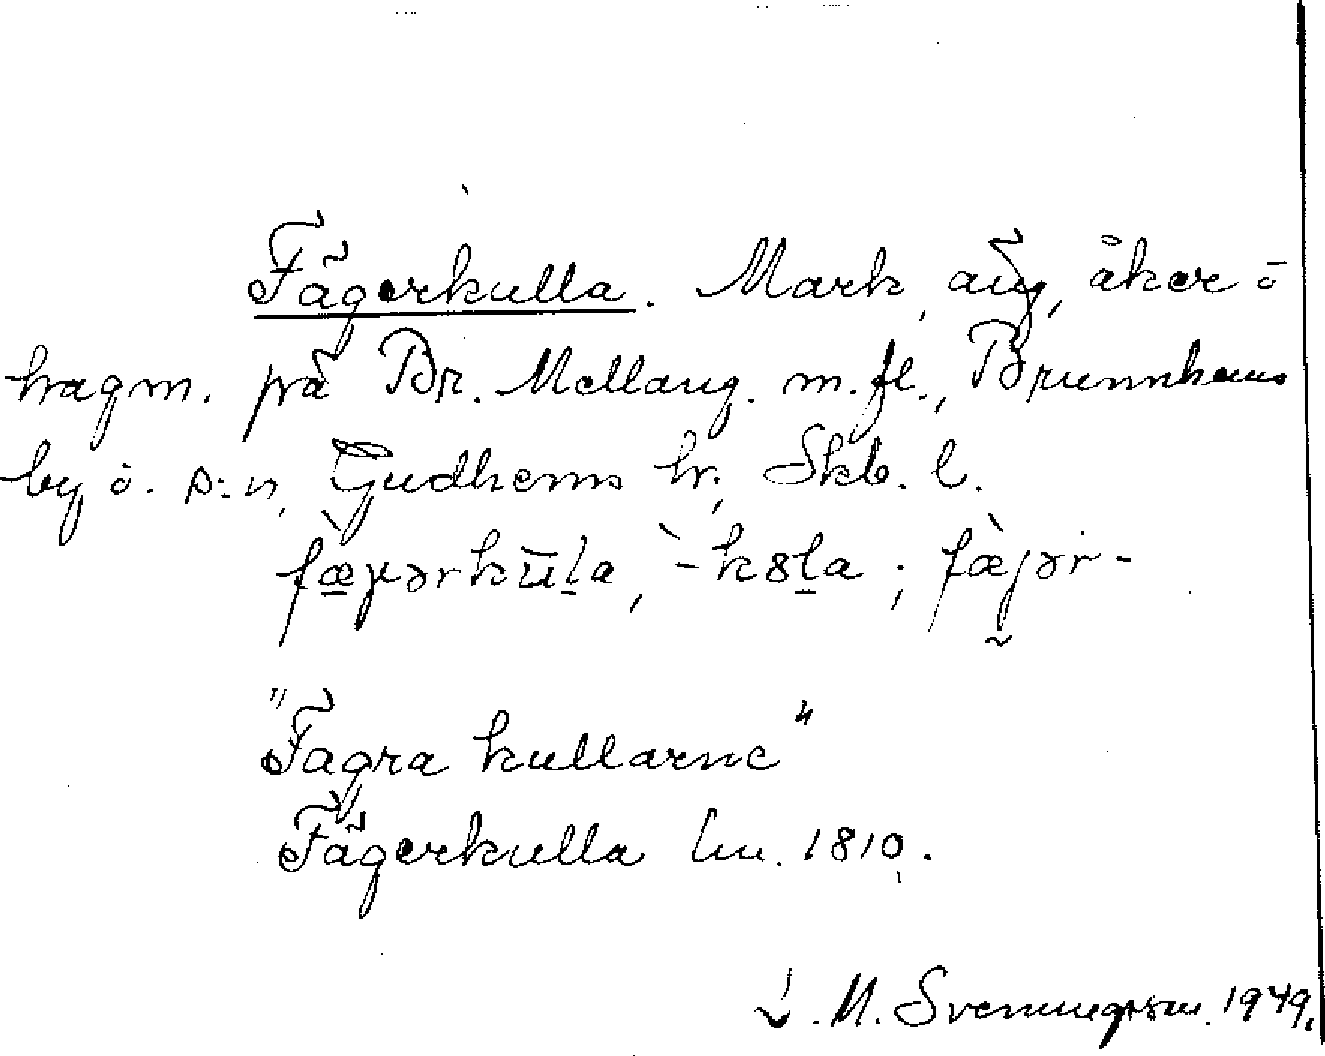 Fägerkulla. Mark, äng, åker o
hagm. på Br. Mellang. m.fl., Brunnhems
by o. s:n, Gudhems hr, Skb. l.
fæ̀gərkūla, -̀kȣla ; fæ̀jər-
"Fagra kullarne"
Fägerkulla lm. 1810.
L. M. Svenungsson. 1949.